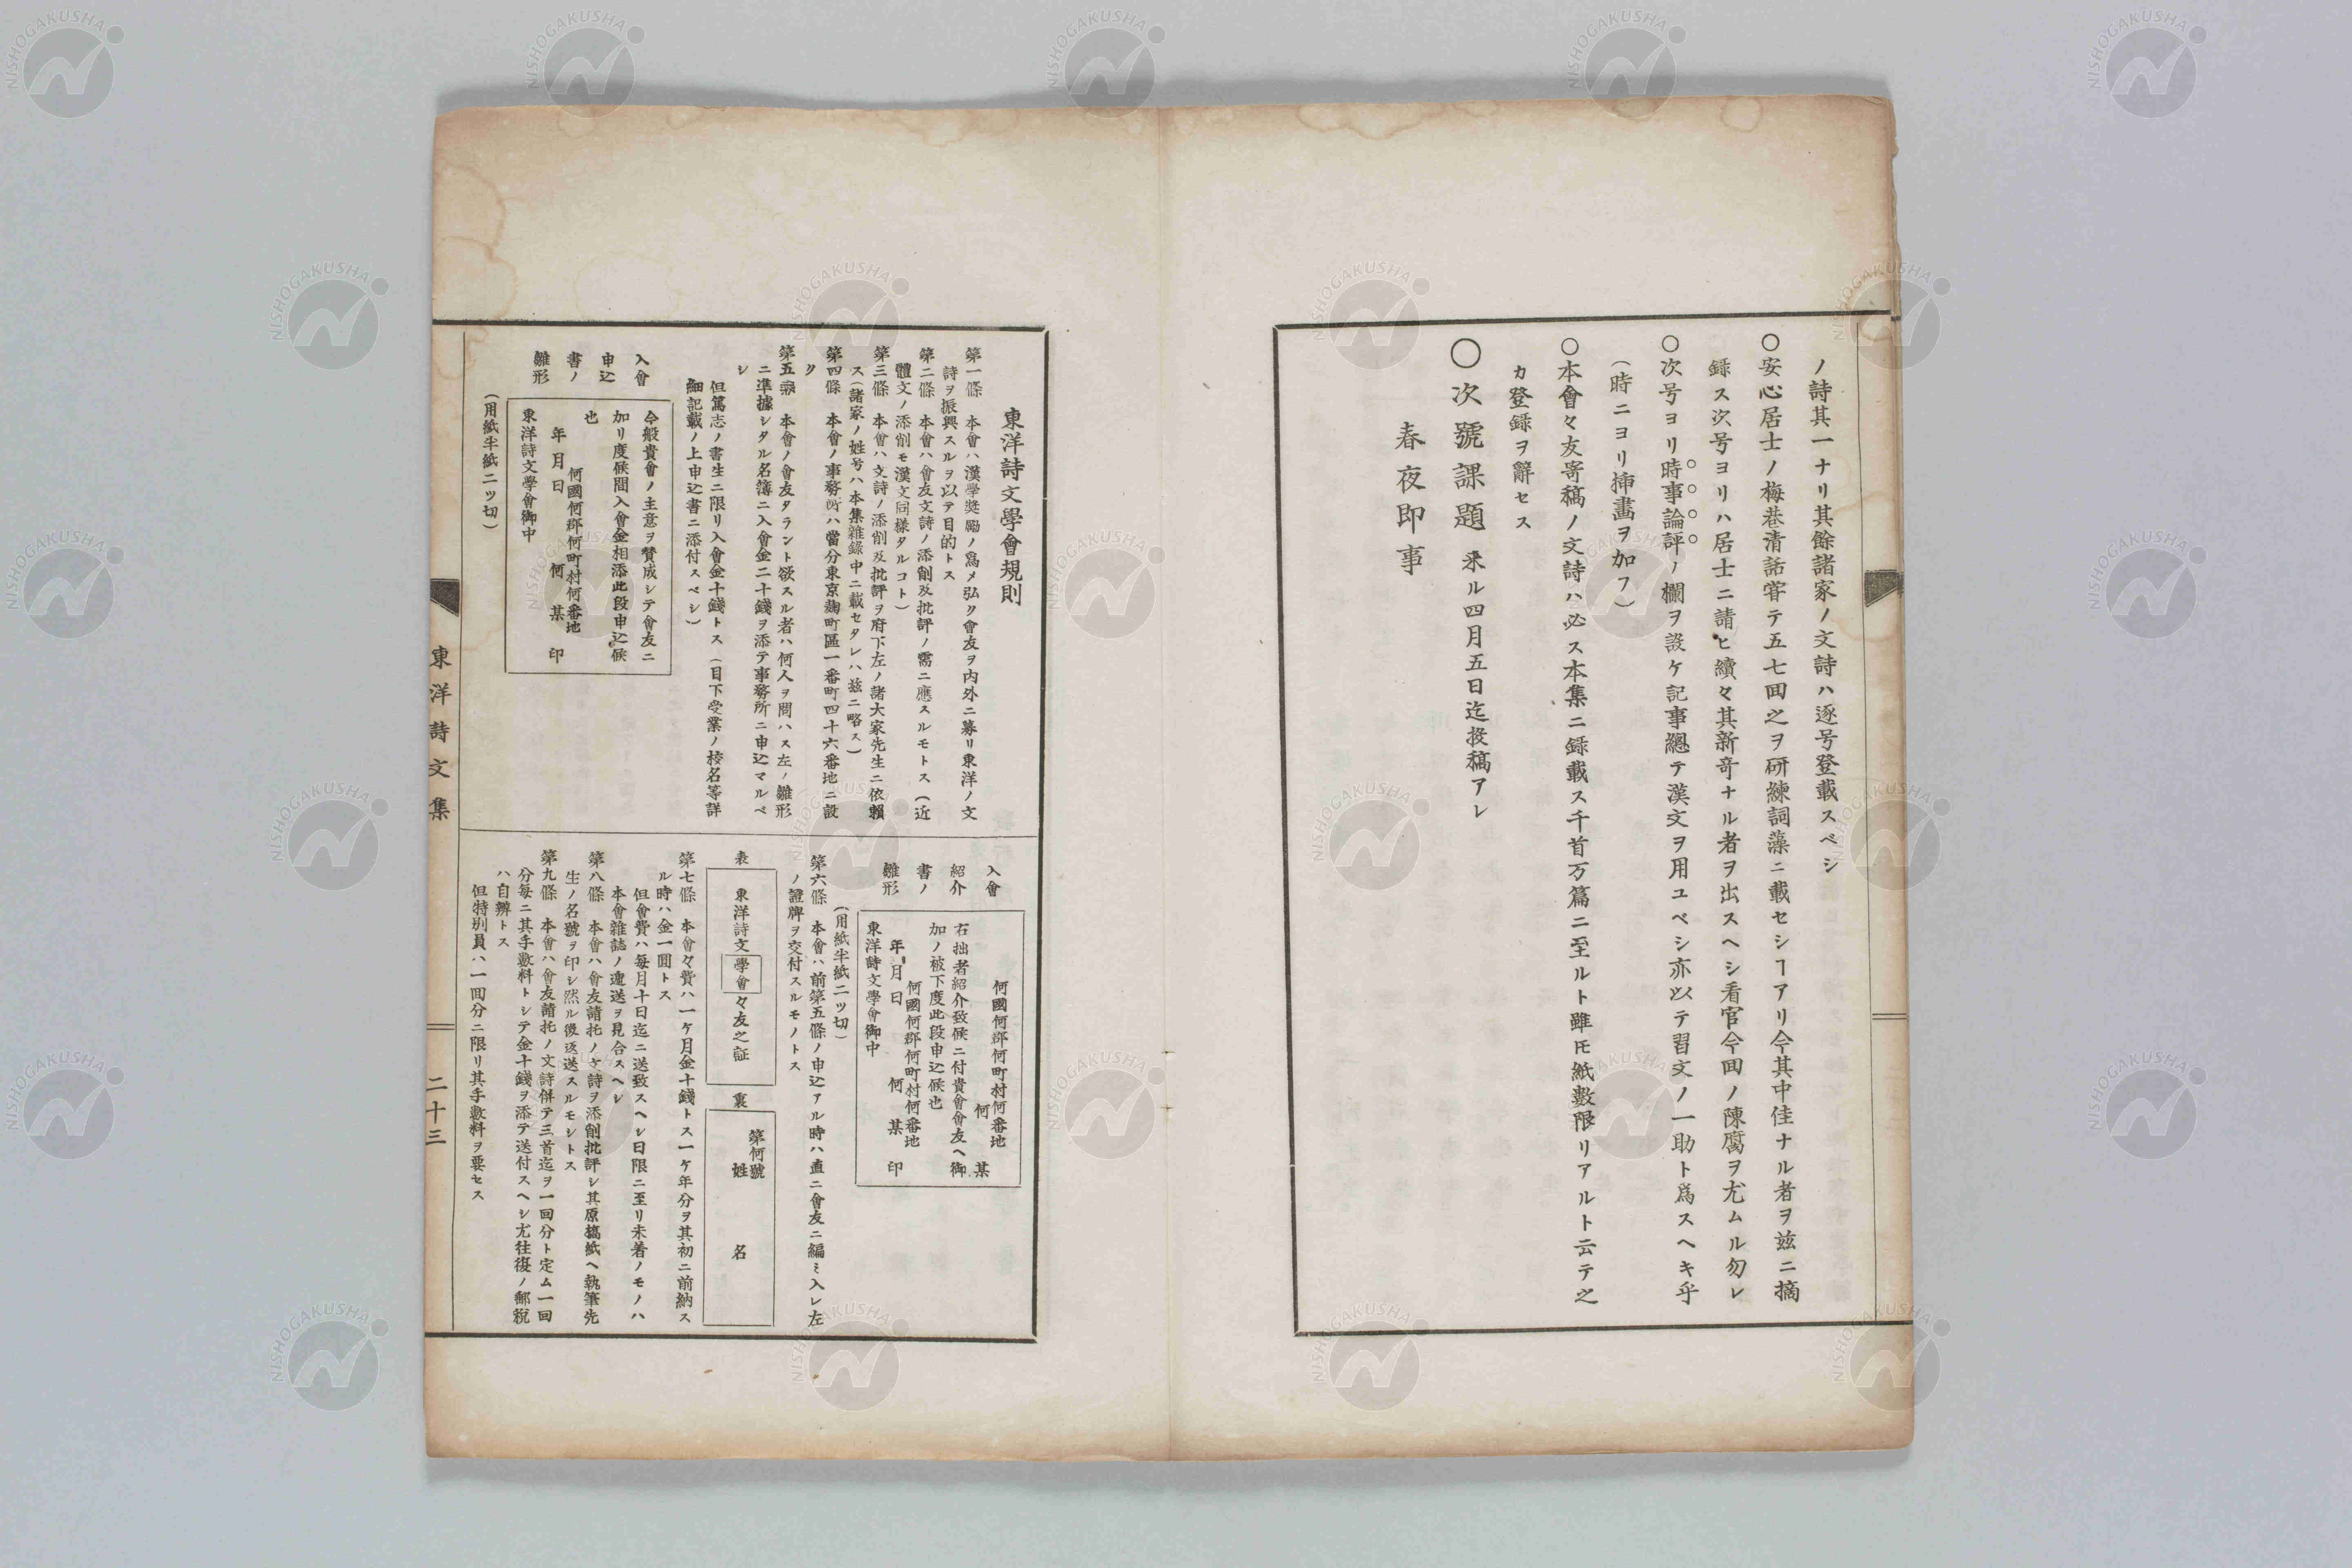 ノ詩其一ナリ其餘諸家ノ文詩ハ逐号登載スベシ
○安心居士ノ梅巷清話甞テ五七回之ヲ研練詞藻ニ載セシヿアリ今其中佳ナル者ヲ玆ニ摘
録ス次号ヨリハ居士ニ請ヒ續々其新竒ナル者ヲ出スヘシ看官今回ノ陳腐ヲ尤ムル勿レ
○次号ヨリ時事論評ノ欄ヲ設ケ記事總テ漢文ヲ用ユベシ亦以テ習文ノ一助ト爲スヘキ乎
(時ニヨリ揷畫ヲ加フ)
○本會々友寄稿ノ文詩ハ必ス本集ニ録載ス千首万篇ニ至ルト雖𪜈紙數限リアルト云テ之
カ登録ヲ辭セス
○次號課題 来ル四月五日迄投稿アレ
春夜即事
東洋詩文學會規則
第一條 本會ハ漢學奬勵ノ爲メ弘ク會友ヲ内外ニ募リ東洋ノ文
詩ヲ振興スルヲ以テ目的トス
第二條 本會ハ會友文詩ノ添削及批評ノ需ニ應スルモトス(近
體文ノ添削モ漢文同樣タルコト)
第三條 本會ハ文詩ノ添削及批評ヲ府下左ノ諸大家先生ニ依賴
ス(諸家ノ姓号ハ本集雜錄中ニ載セタレハ玆ニ略ス)
第四條 本會ノ事務所ハ當分東京麹町區一番町四十六番地ニ設
ク
第五條 本會ノ會友タラント欲スル者ハ何人ヲ問ハス左ノ雛形
ニ準據シタル名簿ニ入會金二十錢ヲ添テ事務所ニ申込マルベ
シ
但篤志ノ書生ニ限リ入會金十錢トス(目下受業ノ校名等詳
細記載ノ上申込書ニ添付スベシ)
入會
申込
書ノ
雛形
今般貴會ノ主意ヲ賛成シテ會友ニ
加リ度候間入會金相添此段申込候
也
何國何郡何町村何番地
年月日 何 某 印
東洋詩文學會御中
(用紙半紙二ツ切)
入會
紹介
書ノ
雛形
何國何郡何町村何番地
何 某
右拙者紹介致候ニ付貴會會友ヘ御
加ノ被下度此段申込候也
何國何郡何町村何番地
年月日 何 某 印
東洋詩文學會御中
(用紙半紙二ツ切)
第六條 本會ハ前第五條ノ申込アル時ハ直ニ會友ニ編ミ入レ左
ノ證牌ヲ交付スルモノトス
表
東洋詩文學會々友之証
裏
第何號
姓 名
第七條 本會々費ハ一ケ月金十錢トス一ケ年分ヲ其初ニ前納ス
ル時ハ金一圓トス
但會費ハ毎月十日迄ニ送致スヘシ日限ニ至リ未着ノモノハ
本會雜誌ノ遞送ヲ見合スヘシ
第八條 本會ハ會友請托ノ文詩ヲ添削批評シ其原稿紙ヘ執筆先
生ノ名號ヲ印シ然ル後返送スルモントス
第九條 本會ハ會友請托ノ文詩併テ三首迄ヲ一回分ト定ム一回
分毎ニ其手數料トシテ金十錢ヲ添テ送付スヘシ尤往復ノ郵税
ハ自辨トス
但特別員ハ一回分ニ限リ其手數料ヲ要セス
東洋詩文集
二十三